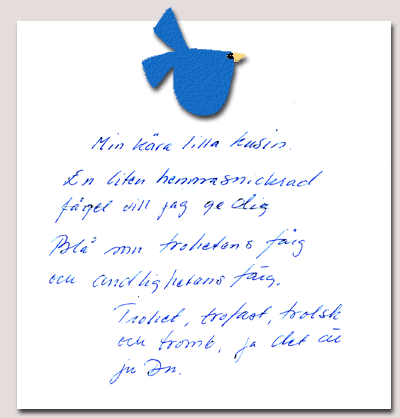 Min kära lilla kusin.
En liten hemmasnickrad
fågel vill jag ge dig
Blå som trohetens färg
och andlighetens färg.
Trohet, trofast, trolsk
och tromb, ja det är
ju Du.